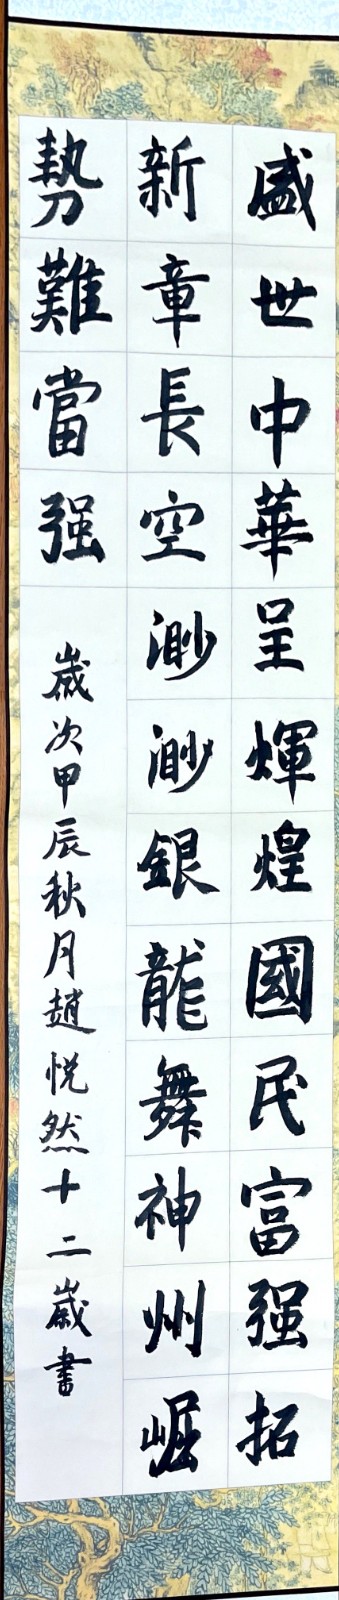 盛世中華呈輝煌國民富强拓
新章長空渺渺銀龍舞神州崛
勢難當强
歲次甲辰秋月趙悦然十二歲書